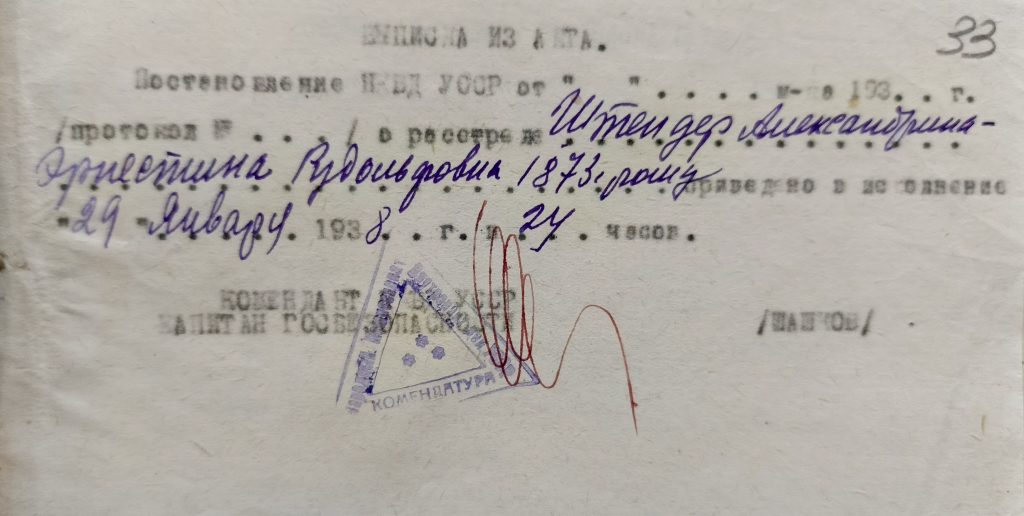 33
ВЫПИСКА ИЗ АКТА.
Постановление НКВД УССР от " " . . . . м-ца 193. . г.
/протокол № . . . / о расстреле Штендер Александрина-
Эрнестина Рудольфовна 1873 г. рожд приведено в исполнение
"29" Января. 1938. . г. в 24 . часов.
КОМЕНДАНТ НКВД УССР
КАПИТАН ГОСБЕЗОПАСНОСТИ /ШАШКОВ/
КОМЕНДАТУРА